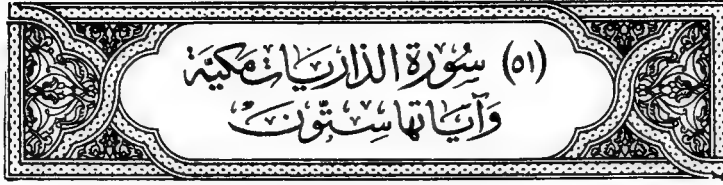 (٥١) سُورَة الذارياتِ مَكيَّة
وَآيَاتها سِتّونَ